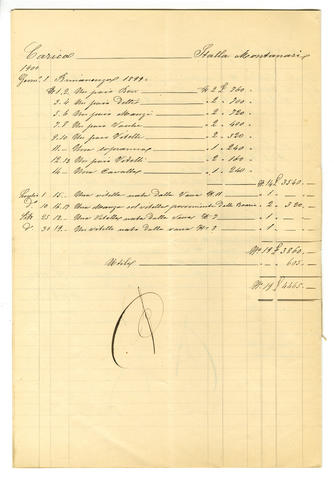 Carico Stalla Montanari
1900.
Genn.° 1 Rimanenza 1899.
N.1.2. Un paio Bovi N. 2 £ 760.
3.4 Un paio Detti " 2 " 720.
5.6 Un paio Manzi " 2 " 320.
7.8 Un paio Vacche " 2 " 400
9.10 Un paio Vitelli " 2 " 320
11.- Una soprana " 1 " 240
12.13 Un paio Vitelli " 2 " 160
14.- Una Cavalla " 1 " 240.
N. 14 £ 3540.-
Luglio 1 15.- Una vitella nata dalla Vacca N. " 1 -
D.° 10 16.17 Una Manza col vitello proveniente dalla " 2 " 320.-
25 18.- Un Vitello nato dalla Vacca N. 7 " 1 " - -
D.° 30 19.- Un vitello nato dalla vacca N. " 1 " - -
N. 19 £ 3860.-
Utile " " 605.-
N. 19 £ 4465.-